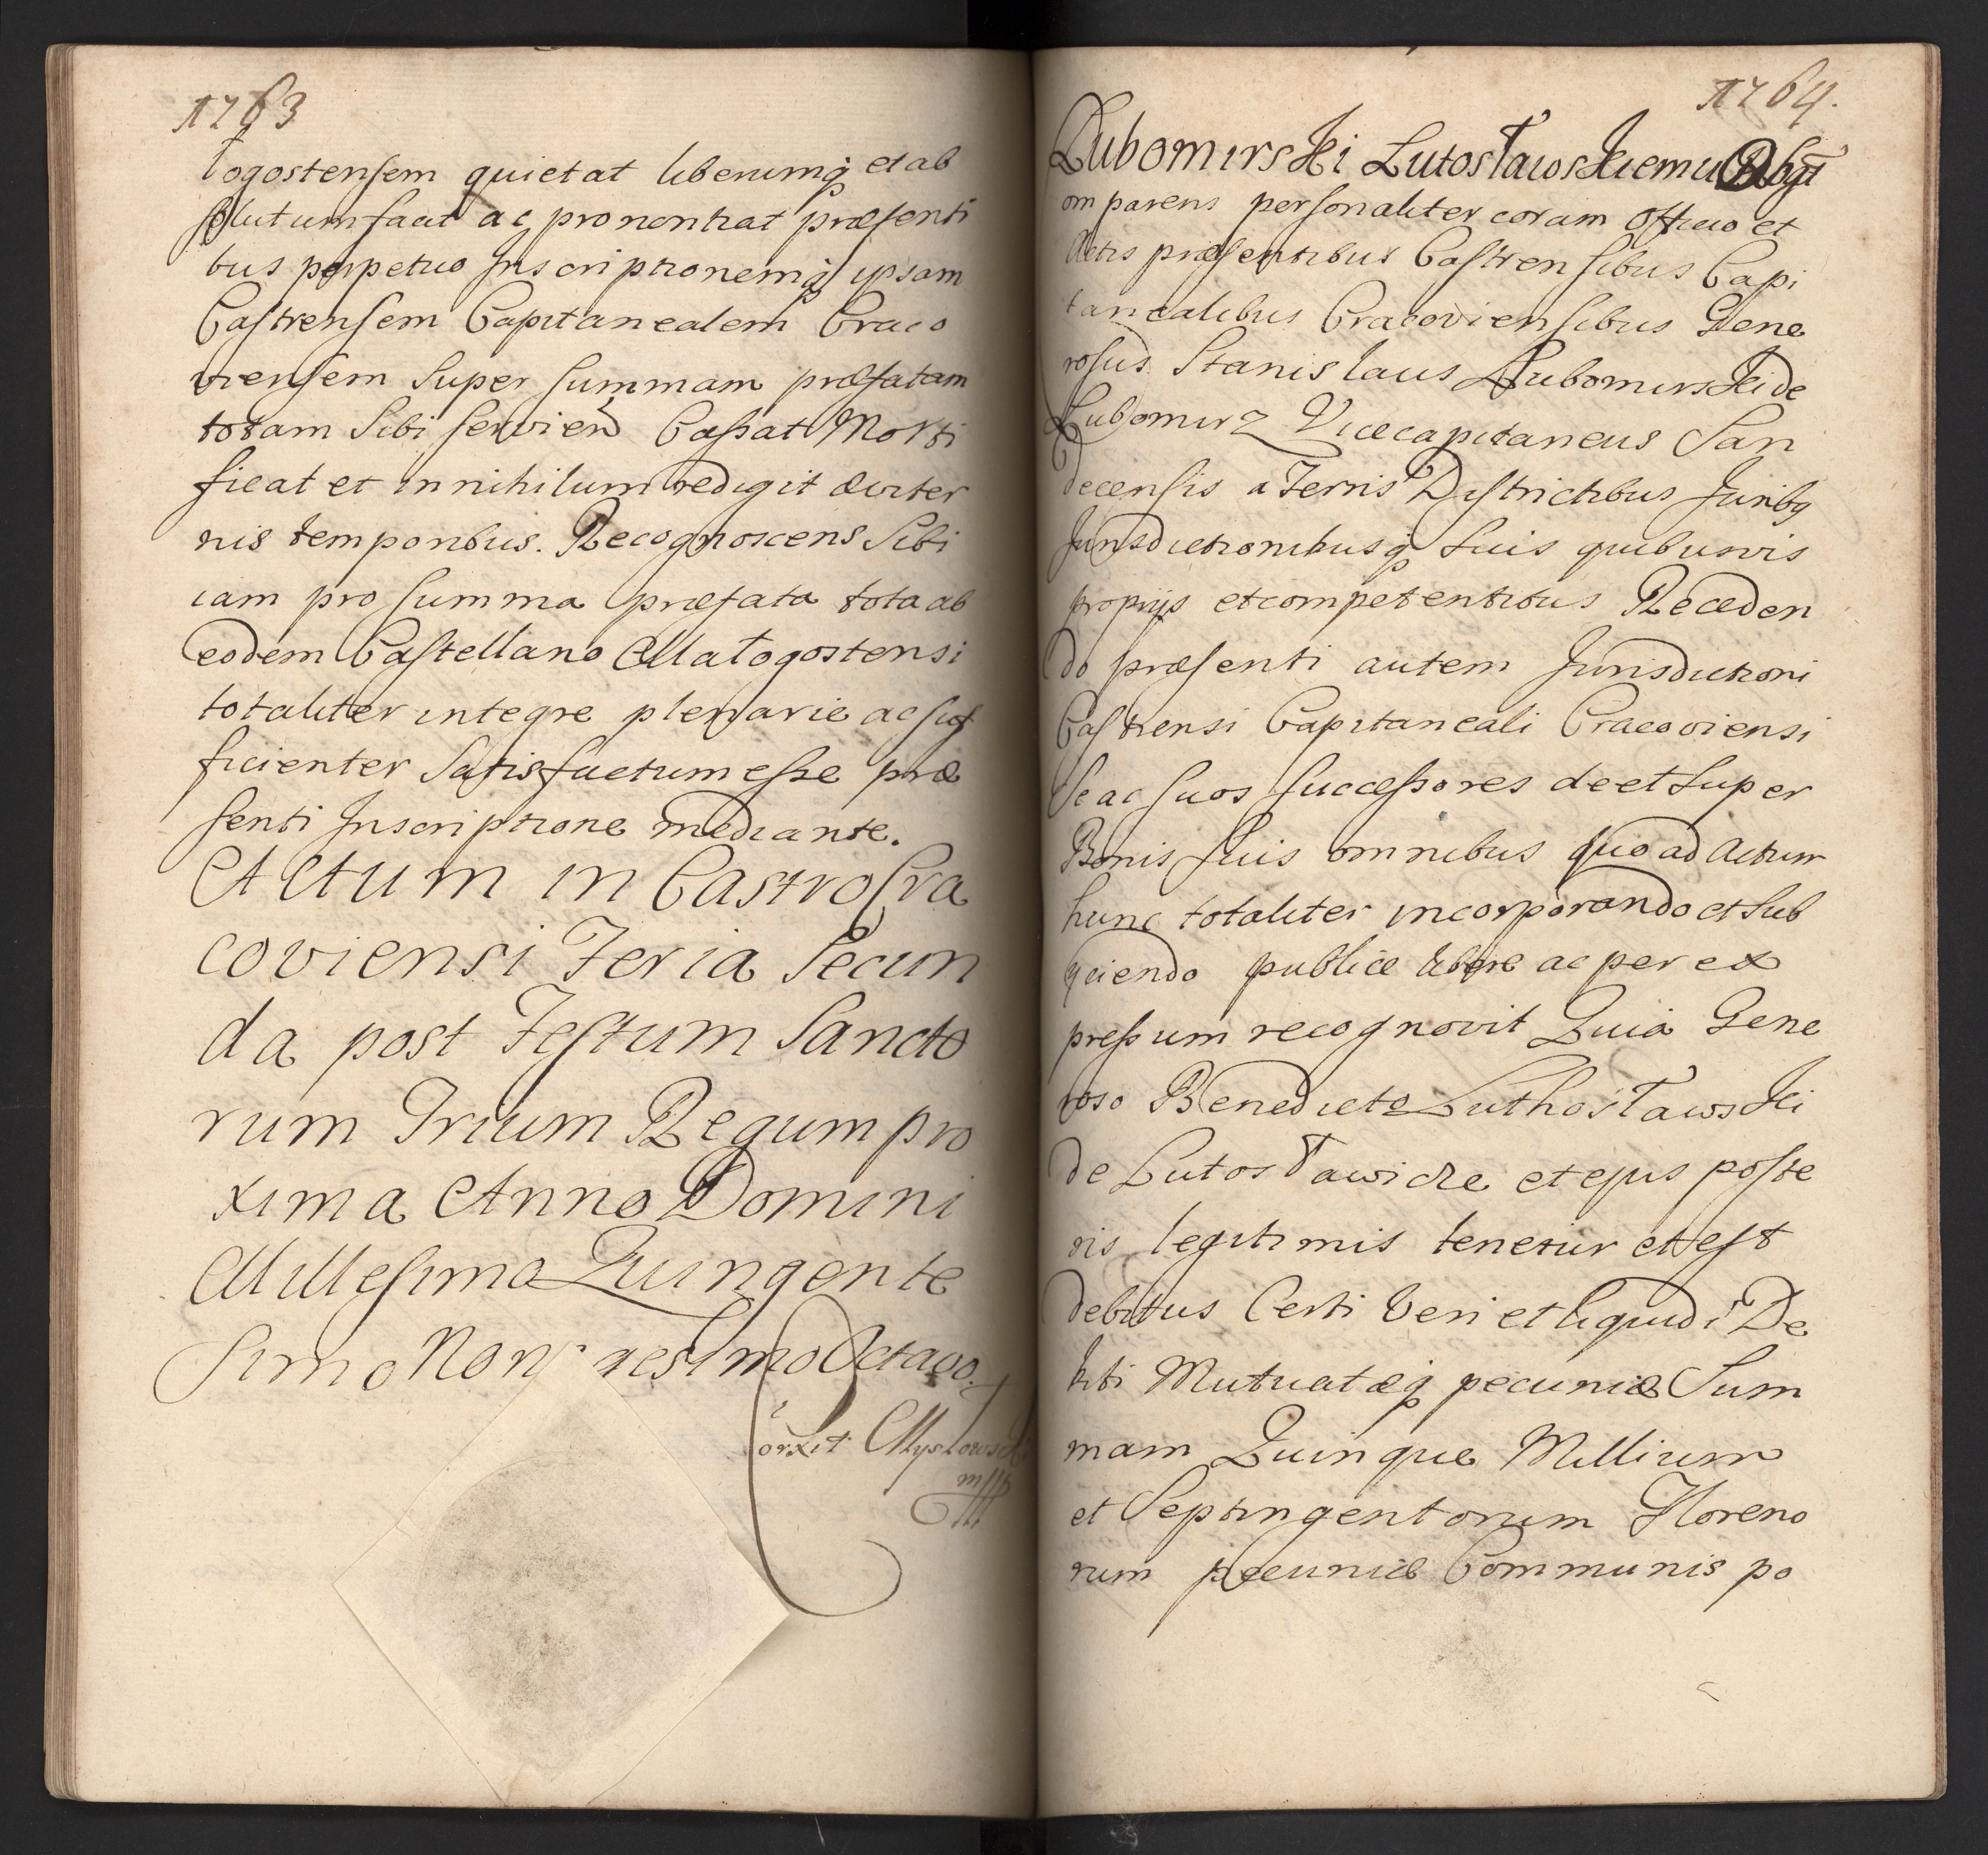 1763
łogostensem quietat liberumq̨ et ab
solutum facit ac pronontiat præsenti
bus perpetuo Inscriptionemq̨ ipsam
Castrensem Capitanealem Craco
viensem super summam præfatam
totam Sibi servien Cassat Morti
ficat et in nihilum redigit æviter
nis temporibus. Recognoscens Sibi
iam pro summa præfata tota ab
eodem Castellano Małogostensi
totaliter integre plenarie ac suf
ficienter Satisfactum esse præ
senti Inscriptione mediante.
Actum in Castro Cra
coviensi Feria Secun
da post Festum Sancto
rum Trium Regum pro
xima Anno Domini
Millesimo Quingente
Simo Non gesimo Octavo.
Corxit Mysłowski
mpp
1764.
Lubomirski Lutosławskiemu Obgt
omparens personaliter coram Officio et
Actis præsentibus Castrensibus Capi
tanealibus Cracoviensibus Gene
rosus Stanislaus Lubomirski de
Lubomirz Vicecapitaneus San
decensis a Terris Districtibus Juribq
Jurisdictionibusq̨ Suis quibusvis
propriis et competentibus Receden
do præsenti autem Jurisdictioni
Castrensi Capitaneali Cracoviensi
Se ac suos successores de et super
Bonis suis omnibus quo ad Actum
hunc totaliter incorporando et Sub
yciendo publice libere ac per ex
pressum recognovit Quia Gene
roso Benedicto Luthosławski
de Lutosławicze et ejus poste
ris legitimis tenetur et est
debitus Certi Veri et liquidi De
biti Mutuatæq̨ pecuniæ Sum
mam Quinque Millium
et Septingentorum Floreno
rum pecuniæ Communis po